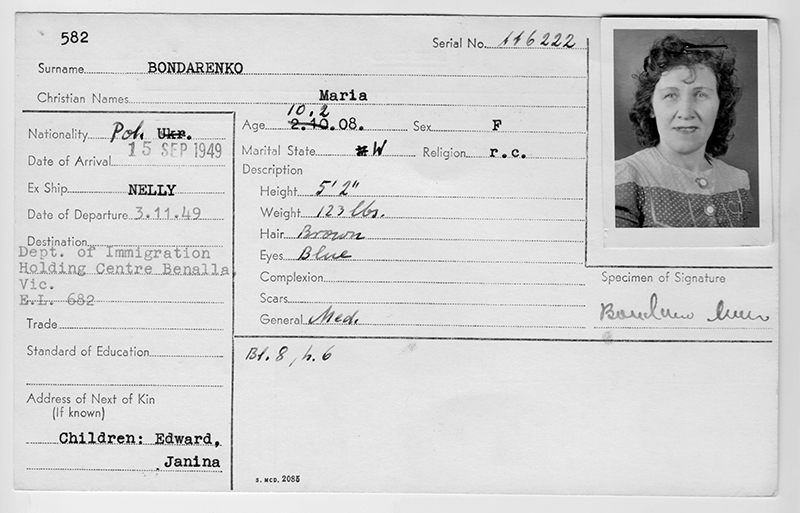 582
Serial No. 116222
Surname BONDARENKO
Christian Names Maria
Nationality Pol. Ukr.
Date of Arrival 15 SEP 1949
Ex Ship NELLY
Date of Departure 3.11.49
Destination
Dept. of Immigration
Holding Centre Benalla,
Vic.
E.L. 682
Trade
Standard of Education
Address of Next of Kin
(If known)
Children: Edward,
Janina
10.2
Age 2.10.08. Sex F
Marital State W Religion r.c.
Description
Height 5'2"
Weight 123 lbs.
Hair Brown
Eyes Blue
Complexion
Scars
General Med.
Bl. 8, h. 6
S. MCD. 2085
Specimen of Signature